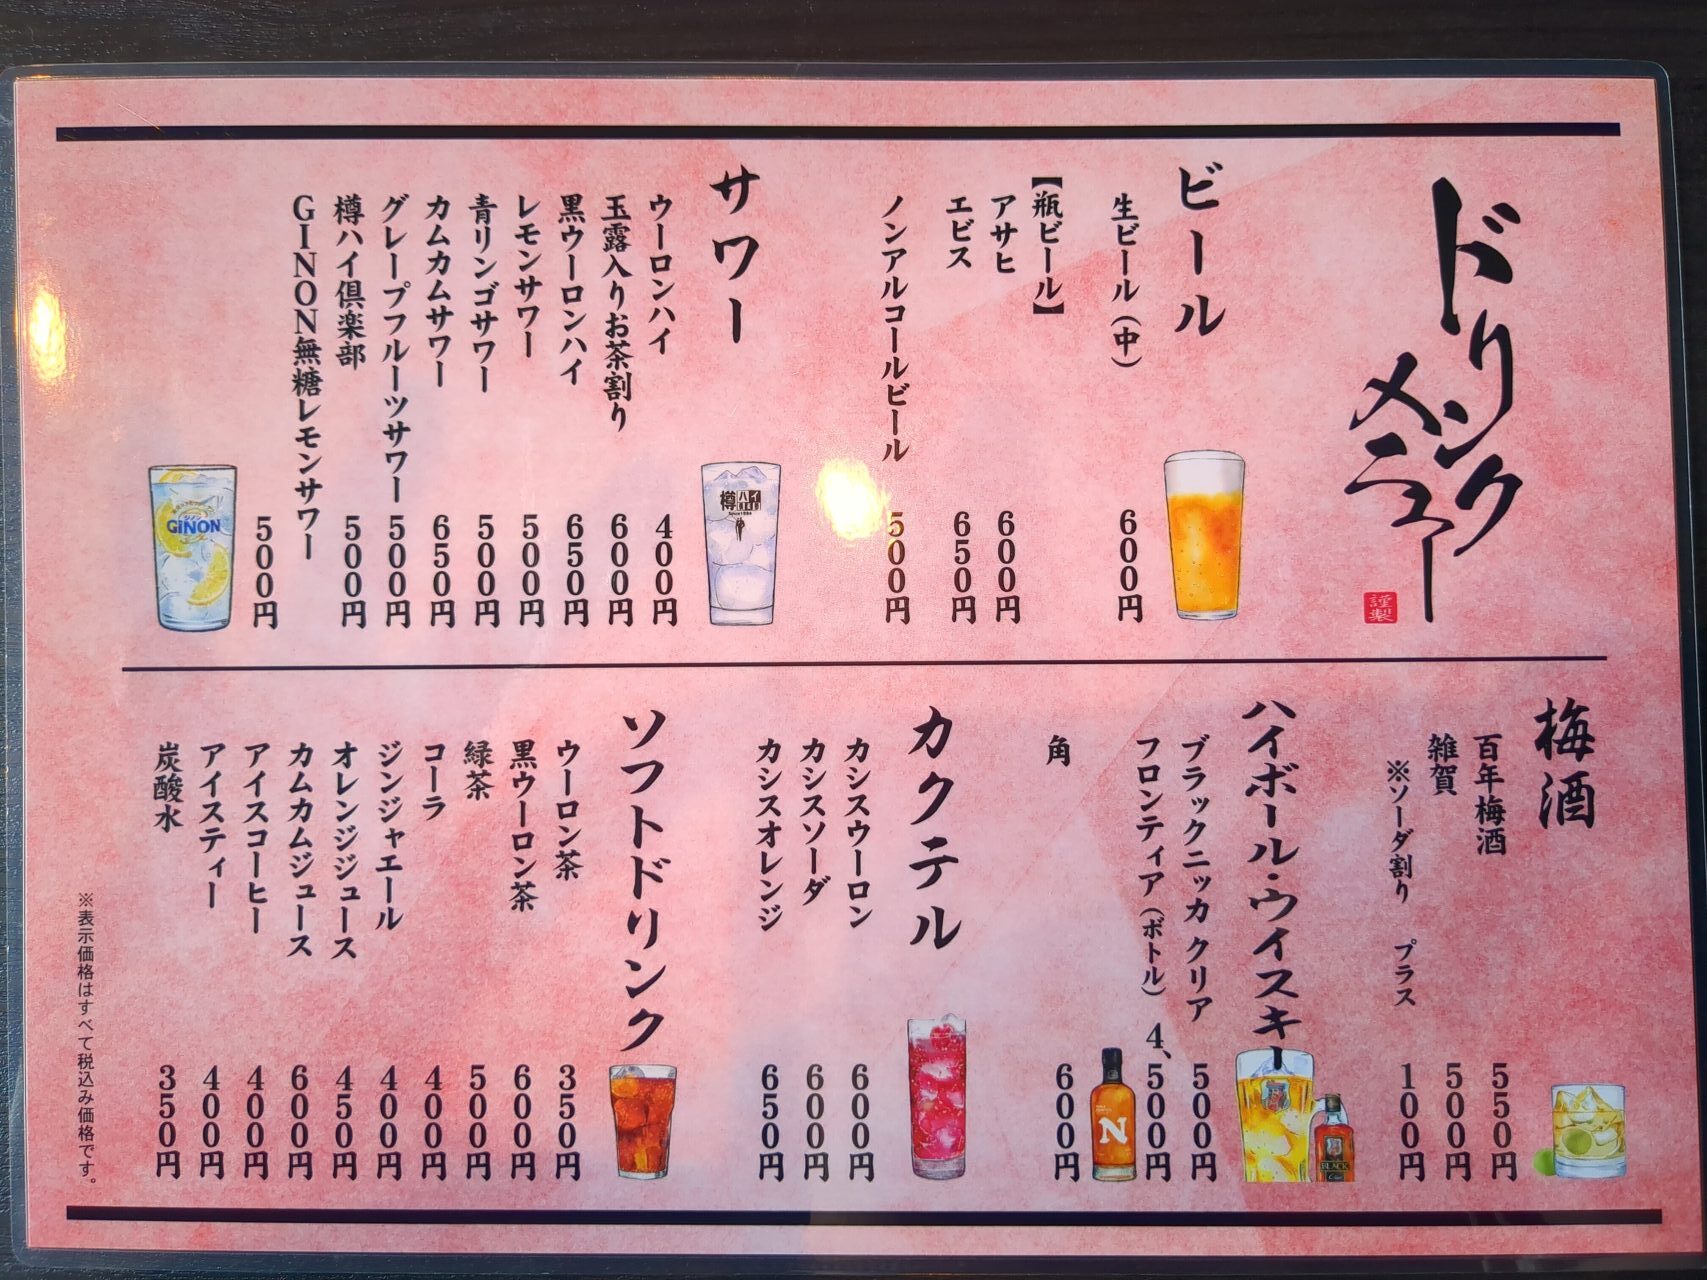 ドリンク
メニュー
謹製
ビール
生ビール（中） 600円
【瓶ビール】
アサヒ 600円
エビス 650円
ノンアルコールビール 500円
サワー
樽ハイ
倶楽部
Since1984
ウーロンハイ 400円
玉露入りお茶割り 600円
黒ウーロンハイ 650円
レモンサワー 500円
青リンゴサワー 500円
カムカムサワー 650円
グレープフルーツサワー 500円
樽ハイ倶楽部 500円
GINON無糖レモンサワー 500円
GINON
梅酒
百年梅酒 550円
雑賀 500円
※ソーダ割り プラス 100円
ハイボール・ウイスキー
BLACK
ブラックニッカ クリア 500円
フロンティア（ボトル） 4、500円
N
角 600円
カクテル
カシスウーロン 600円
カシスソーダ 600円
カシスオレンジ 650円
ソフトドリンク
ウーロン茶 350円
黒ウーロン茶 600円
緑茶 500円
コーラ 400円
ジンジャエール 400円
オレンジジュース 450円
カムカムジュース 600円
アイスコーヒー 400円
アイスティー 400円
炭酸水 350円
※表示価格はすべて税込み価格です。